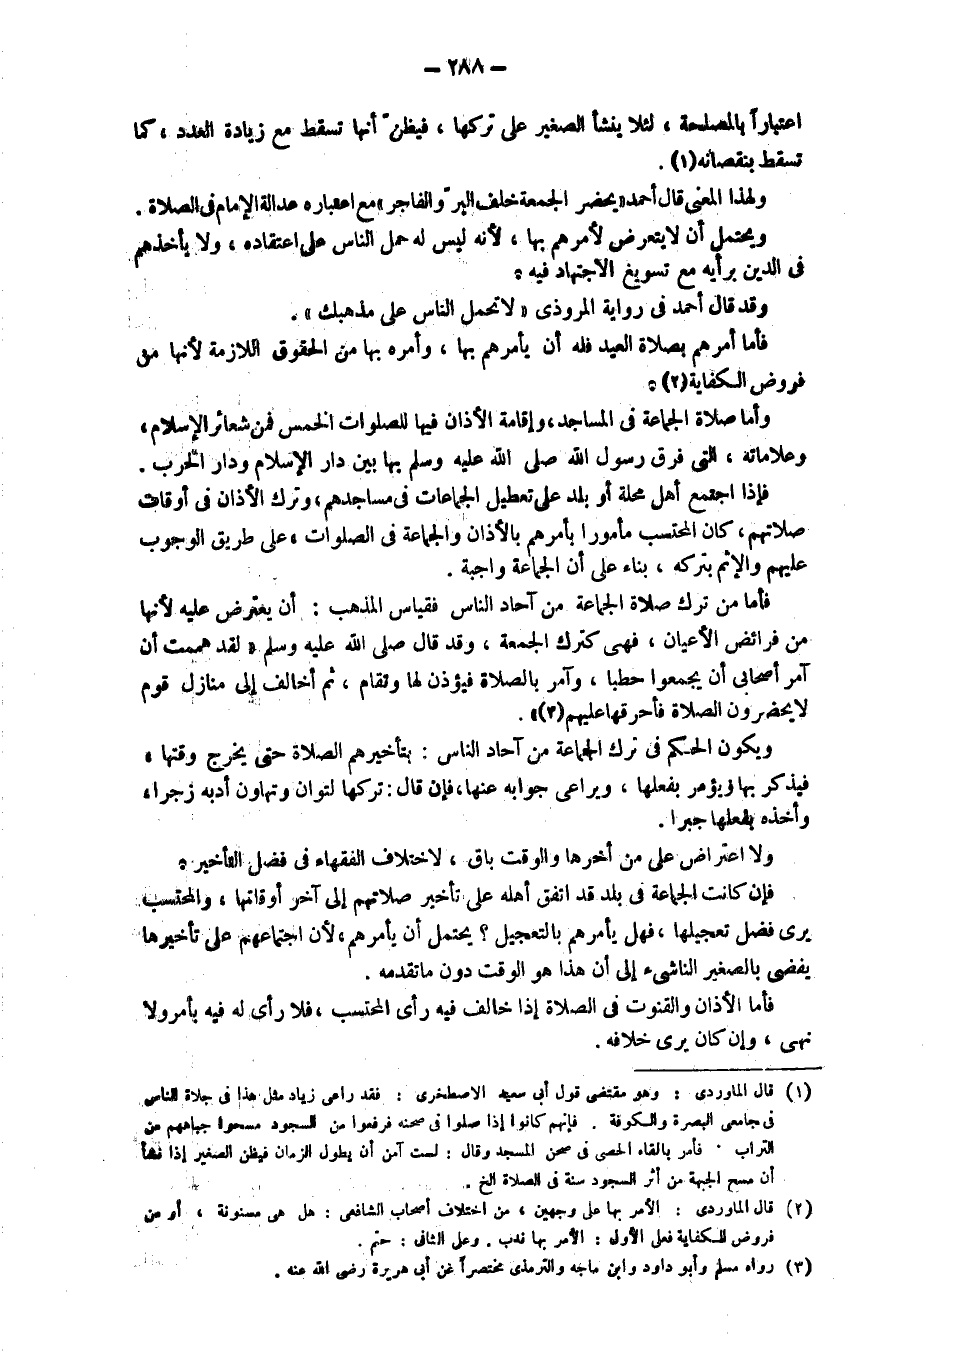 — ٢٨٨ —
اعتباراً بالمصلحة ، لئلا ينشأ الصغير على تركها ، فيظنّ أنها تسقط مع زيادة العدد ، كما
تسقط بنقصانه(١) .
ولهذا المعنى قال أحمد «يحضر الجمعة خلف البرّ والفاجر» مع اعتباره عدالة الإمام فى الصلاة .
ويحتمل أن لا يتعرض لأمرهم بها ، لأنه ليس له حمل الناس على اعتقاده ، ولا يأخذهم
فى الدين برأيه مع تسويغ الاجتهاد فيه .
وقد قال أحمد فى رواية المروذى « لا تحمل الناس على مذهبك » .
فأما أمرهم بصلاة العيد فله أن يأمرهم بها ، وأمره بها من الحقوق اللازمة لأنها من
فروض الكفاية(٢) .
وأما صلاة الجماعة فى المساجد ، وإقامة الأذان فيها للصلوات الخمس فمن شعائر الإسلام ،
وعلاماته ، التى فرق رسول الله صلى الله عليه وسلم بها بين دار الإسلام ودار الحرب .
فإذا اجتمع أهل محلة أو بلد على تعطيل الجماعات فى مساجدهم ، وترك الأذان فى أوقات
صلاتهم ، كان المحتسب مأمورا بأمرهم بالأذان والجماعة فى الصلوات ، على طريق الوجوب
عليهم والإثم بتركه ، بناء على أن الجماعة واجبة .
فأما من ترك صلاة الجماعة من آحاد الناس فقياس المذهب : أن يعترض عليه لأنها
من فرائض الأعيان ، فهى كترك الجمعة ، وقد قال صلى الله عليه وسلم « لقد هممت أن
آمر أصحابى أن يجمعوا حطبا ، وآمر بالصلاة فيؤذن لها وتقام ، ثم أخالف إلى منازل قوم
لا يحضرون الصلاة فأحرقها عليهم(٣)» .
ويكون الحكم فى ترك الجماعة من آحاد الناس : بتأخيرهم الصلاة حتى يخرج وقتها ،
فيذكر بها ويؤمر بفعلها ، ويراعى جوابه عنها ، فإن قال : تركها لتوان وتهاون أدبه زجرا ،
وأخذه بفعلها جبرا .
ولا اعتراض على من أخرها والوقت باق ، لاختلاف الفقهاء فى فضل التأخير .
فإن كانت الجماعة فى بلد قد اتفق أهله على تأخير صلاتهم إلى آخر أوقاتها ، والمحتسب
يرى فضل تعجيلها ، فهل يأمرهم بالتعجيل ؟ يحتمل أن يأمرهم ، لأن اجتماعهم على تأخيرها
يفضى بالصغير الناشىء إلى أن هذا هو الوقت دون ما تقدمه .
فأما الأذان والقنوت فى الصلاة إذا خالف فيه رأى المحتسب ، فلا رأى له فيه بأمر ولا
نهى ، وإن كان يرى خلافه .
(١) قال الماوردى : وهو مقتضى قول أبى سعيد الاصطخرى : فقد راعى زياد مثل هذا فى جلاة الناس
فى جامعى البصرة والكوفة . فإنهم كانوا إذا صلوا فى صحنه فرفعوا من السجود مسحوا جباههم من
التراب . فأمر بالقاء الحصى فى صحن المسجد وقال : لست آمن أن يطول الزمان فيظن الصغير إذا نشأ
أن مسح الجبهة من أثر السجود سنة فى الصلاة الخ .
(٢) قال الماوردى : الأمر بها على وجهين ، من اختلاف أصحاب الشافعى : هل هى مسنونة ، أو من
فروض الكفاية فعلى الأول : الأمر بها ندب . وعلى الثانى : حتم .
(٣) رواه مسلم وأبو داود وابن ماجه والترمذى مختصراً عن أبى هريرة رضى الله عنه .